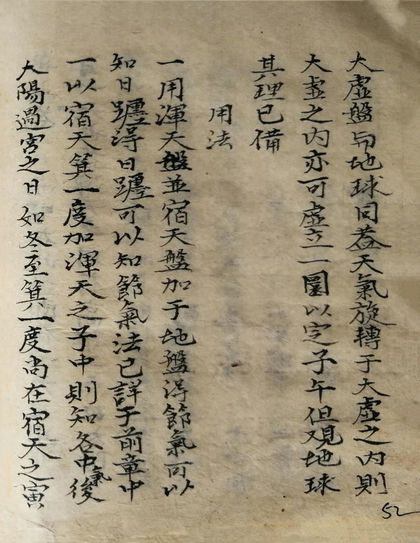 大虛盤与地球同葢天氣旋轉于大虛之内則
大虛之内亦可虛立一圏以定子午但观地球
其理已備
用法
一用渾天盤並宿天盤加于地盤淂節氣可以
知日躔淂日躔可以知節氣法已詳于前章中
一以宿天箕一度加渾天之子中則知各中氣後
太陽過宮之日如冬至箕一度尚在宿天之寅
52